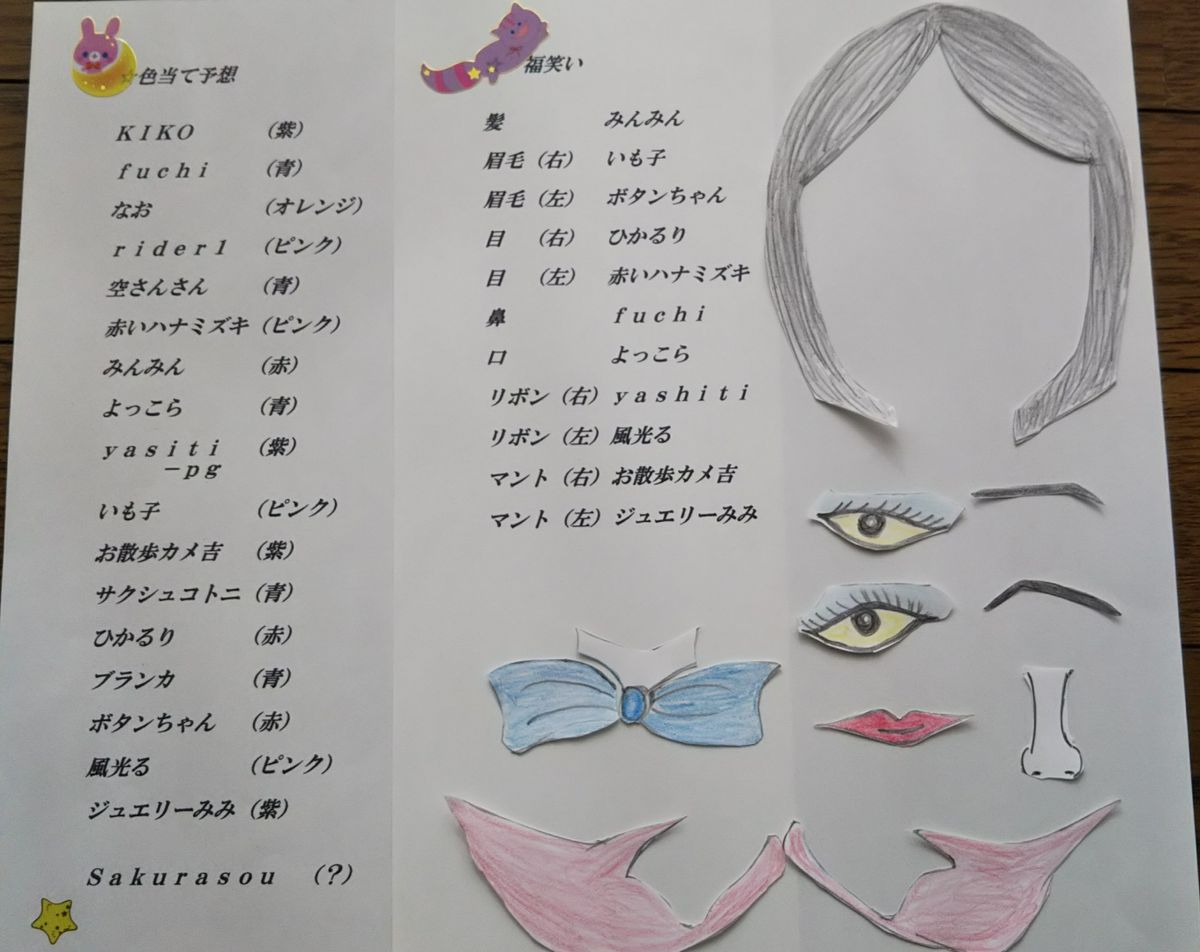 ☆色当て予想
KIKO (紫)
fuchi (青)
なお (オレンジ)
rider1 (ピンク)
空さんさん (青)
赤いハナミズキ (ピンク)
みんみん (赤)
よっこら (青)
yasiti (紫)
－pg
いも子 (ピンク)
お散歩カメ吉 (紫)
サクシュコトニ (青)
ひかるり (赤)
ブランカ (青)
ボタンちゃん (赤)
風光る (ピンク)
ジュエリーみみ (紫)
Sakurasou (?)
福笑い
髪 みんみん
眉毛 (右) いも子
眉毛 (左) ボタンちゃん
目 (右) ひかるり
目 (左) 赤いハナミズキ
鼻 fuchi
口 よっこら
リボン (右) yashiti
リボン (左) 風光る
マント (右) お散歩カメ吉
マント (左) ジュエリーみみ